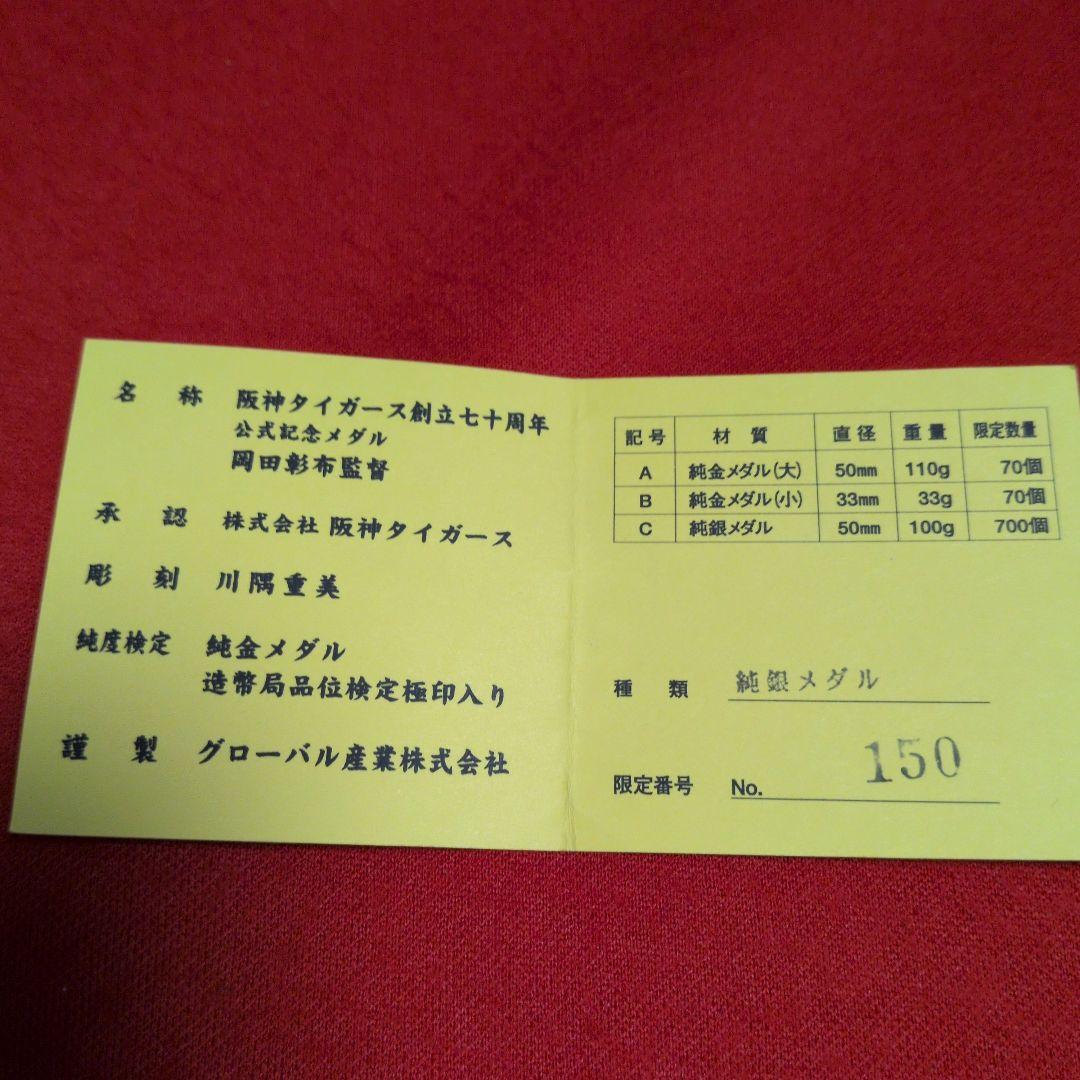 名称 阪神タイガース創立七十周年
公式記念メダル
岡田彰布監督
承認 株式会社 阪神タイガース
彫刻 川隅重美
純度検定 純金メダル
造幣局品位検定極印入り
謹製 グローバル産業株式会社
記号 材質 直径 重量 限定数量
A 純金メダル(大) 50mm 110g 70個
B 純金メダル(小) 33mm 33g 70個
C 純銀メダル 50mm 100g 700個
種類 純銀メダル
限定番号 No. 150